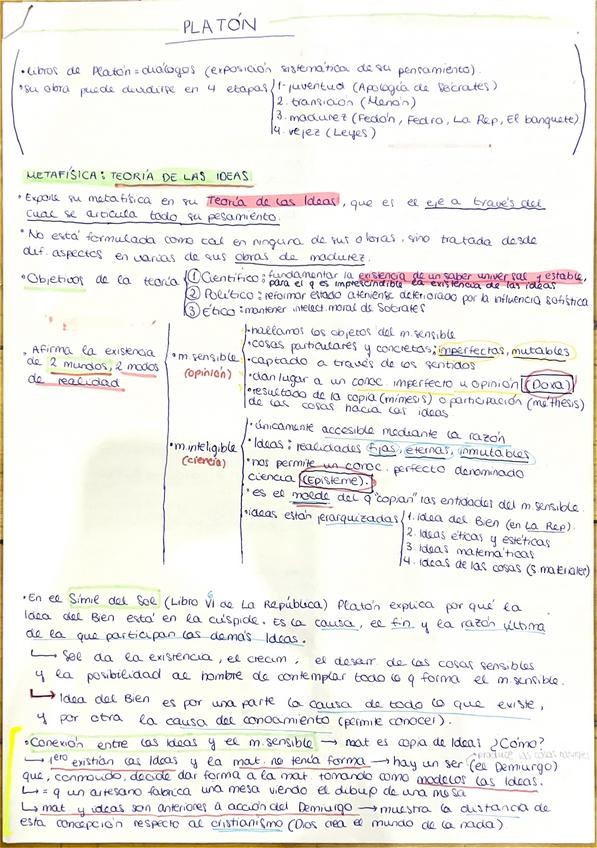 PLATÓN
• Libros de Platón = diálogos (exposición sistemática de su pensamiento).
• su obra puede dividirse en 4 etapas
1. juventud (Apología de Sócrates)
2. transición (Menón)
3. madurez (Fedón, Fedro, La Rep, El banquete)
4. vejez (Leyes)
METAFÍSICA: TEORÍA DE LAS IDEAS
• Expone su metafísica en su Teoría de las Ideas, que es el eje a través del
cual se articula todo su pesamiento.
• No está formulada como tal en ninguna de sus obras, sino tratada desde
dif. aspectos en varias de sus obras de madurez.
• Objetivos de la teoría
① Científico: fundamentar la existencia de un saber universal y estable,
para el q es imprescindible la existencia de las ideas
② Político: reformar estado ateniense deteriorado por la influencia sofística
③ Ético: mantener intelect. moral de Sócrates
• Afirma la existencia
de 2 mundos, 2 modos
de realidad
• m. sensible
(opinión)
• hallamos los objetos del m. sensible
• cosas particulares y concretas; imperfectas, mutables
• captado a través de los sentidos
• dan lugar a un conoc. imperfecto u opinión (Doxa)
• resultado de la copia (mímesis) o participación (méthesis)
de las cosas hacia las ideas
• m. inteligible
(ciencia)
• únicamente accesible mediante la razón
• Ideas: realidades fijas, eternas, inmutables
• nos permite un conoc. perfecto denominado
ciencia (Episteme).
• es el molde del q "copian" las entidades del m. sensible.
• ideas están jerarquizadas
1. idea del Bien (en La Rep).
2. Ideas éticas y estéticas
3. Ideas matemáticas
4. Ideas de las cosas (s. materiales)
• En el Símil del Sol (Libro VI de La República) Platón explica por qué la
Idea del Bien está en la cúspide. Es la causa, el fin y la razón última
de la que participan las demás Ideas.
↳ Sol da la existencia, el crecim, el desarr de las cosas sensibles
y la posibilidad al hombre de contemplar todo lo q forma el m. sensible.
↳ Idea del Bien es por una parte la causa de todo lo que existe,
y por otra la causa del conocimiento (permite conocer).
• Conexión entre las Ideas y el m. sensible → mat es copia de Ideas ¿Cómo?
→ 1ero existían las Ideas y la mat. no tenía forma → hay un ser (el Demiurgo)
que, conmovido, decide dar forma a la mat. tomando como modelos las Ideas.
↳ = q un artesano fabrica una mesa viendo el dibujo de una mesa
↳ mat y ideas son anteriores a acción del Demiurgo → muestra la distancia de
esta concepción respecto al cristianismo (Dios crea el mundo de la nada).